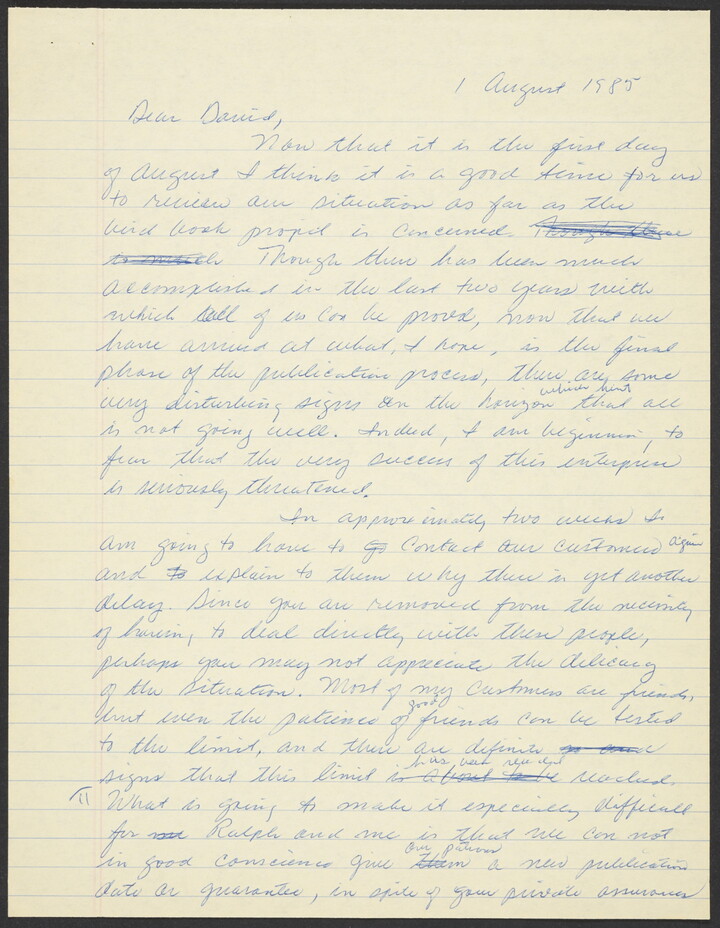 1 August 1985
Dear David,
Now that it is the first day
of August I think it is a good time for us
to review our situation as far as the
bird book project is concerned. Though there
is much Though there has been much
accomplished in the last two years with
which all of us can be proud, now that we
have arrived at what, I hope, is the final
phase of the publication process, there are some
very disturbing signs on the horizon which hint that all
is not going well. Indeed, I am beginning to
fear that the very success of this enterprise
is seriously threatened.
In approximately two weeks I
am going to have to contact our customers again
and to explain to them why there is yet another
delay. Since you are removed from the necessity
of having to deal directly with these people,
perhaps you may not appreciate the delicacy
of the situation. Most of my customers are friends,
but even the patience of good friends can be tested
to the limit, and there are definite
signs that this limit is about to be has been reached.
¶ What is going to make it especially difficult
for me Ralph and me is that we can not
in good conscience give them our patrons a new publication
date or guarantee, in spite of your private assurances